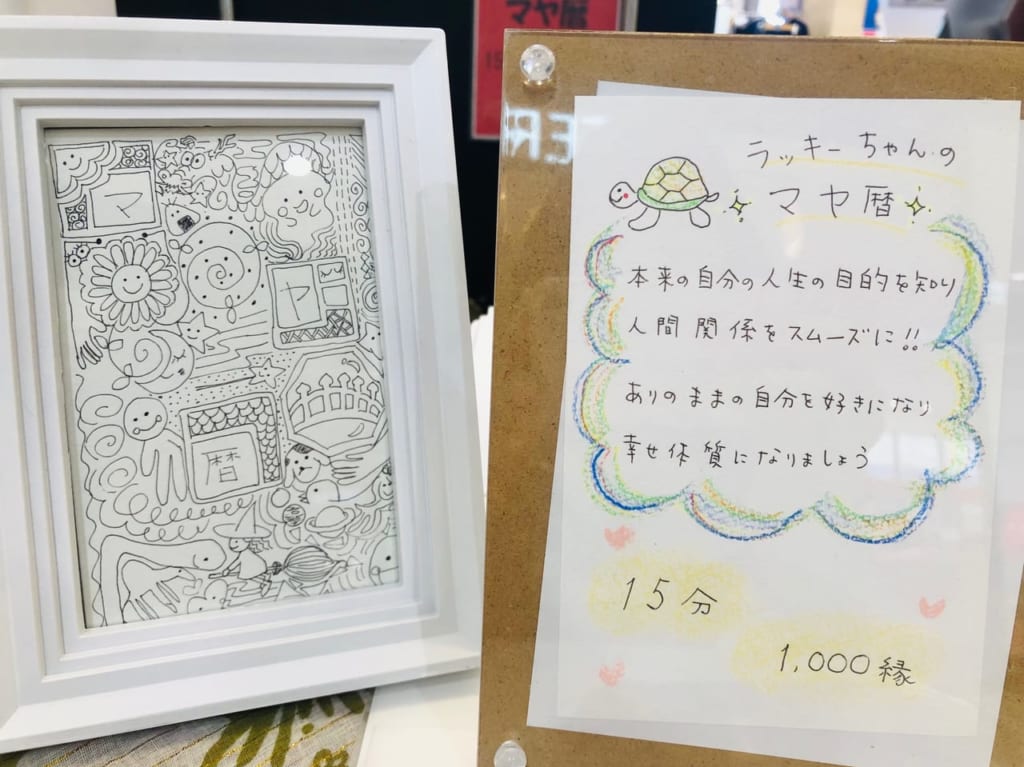 マヤ暦
15
マ
ヤ
暦
ラッキーちゃんの
マヤ暦
本来の自分の人生の目的を知り
人間関係をスムーズに!!
ありのままの自分を好きになり
幸せ体質になりましょう
15分
1,000縁